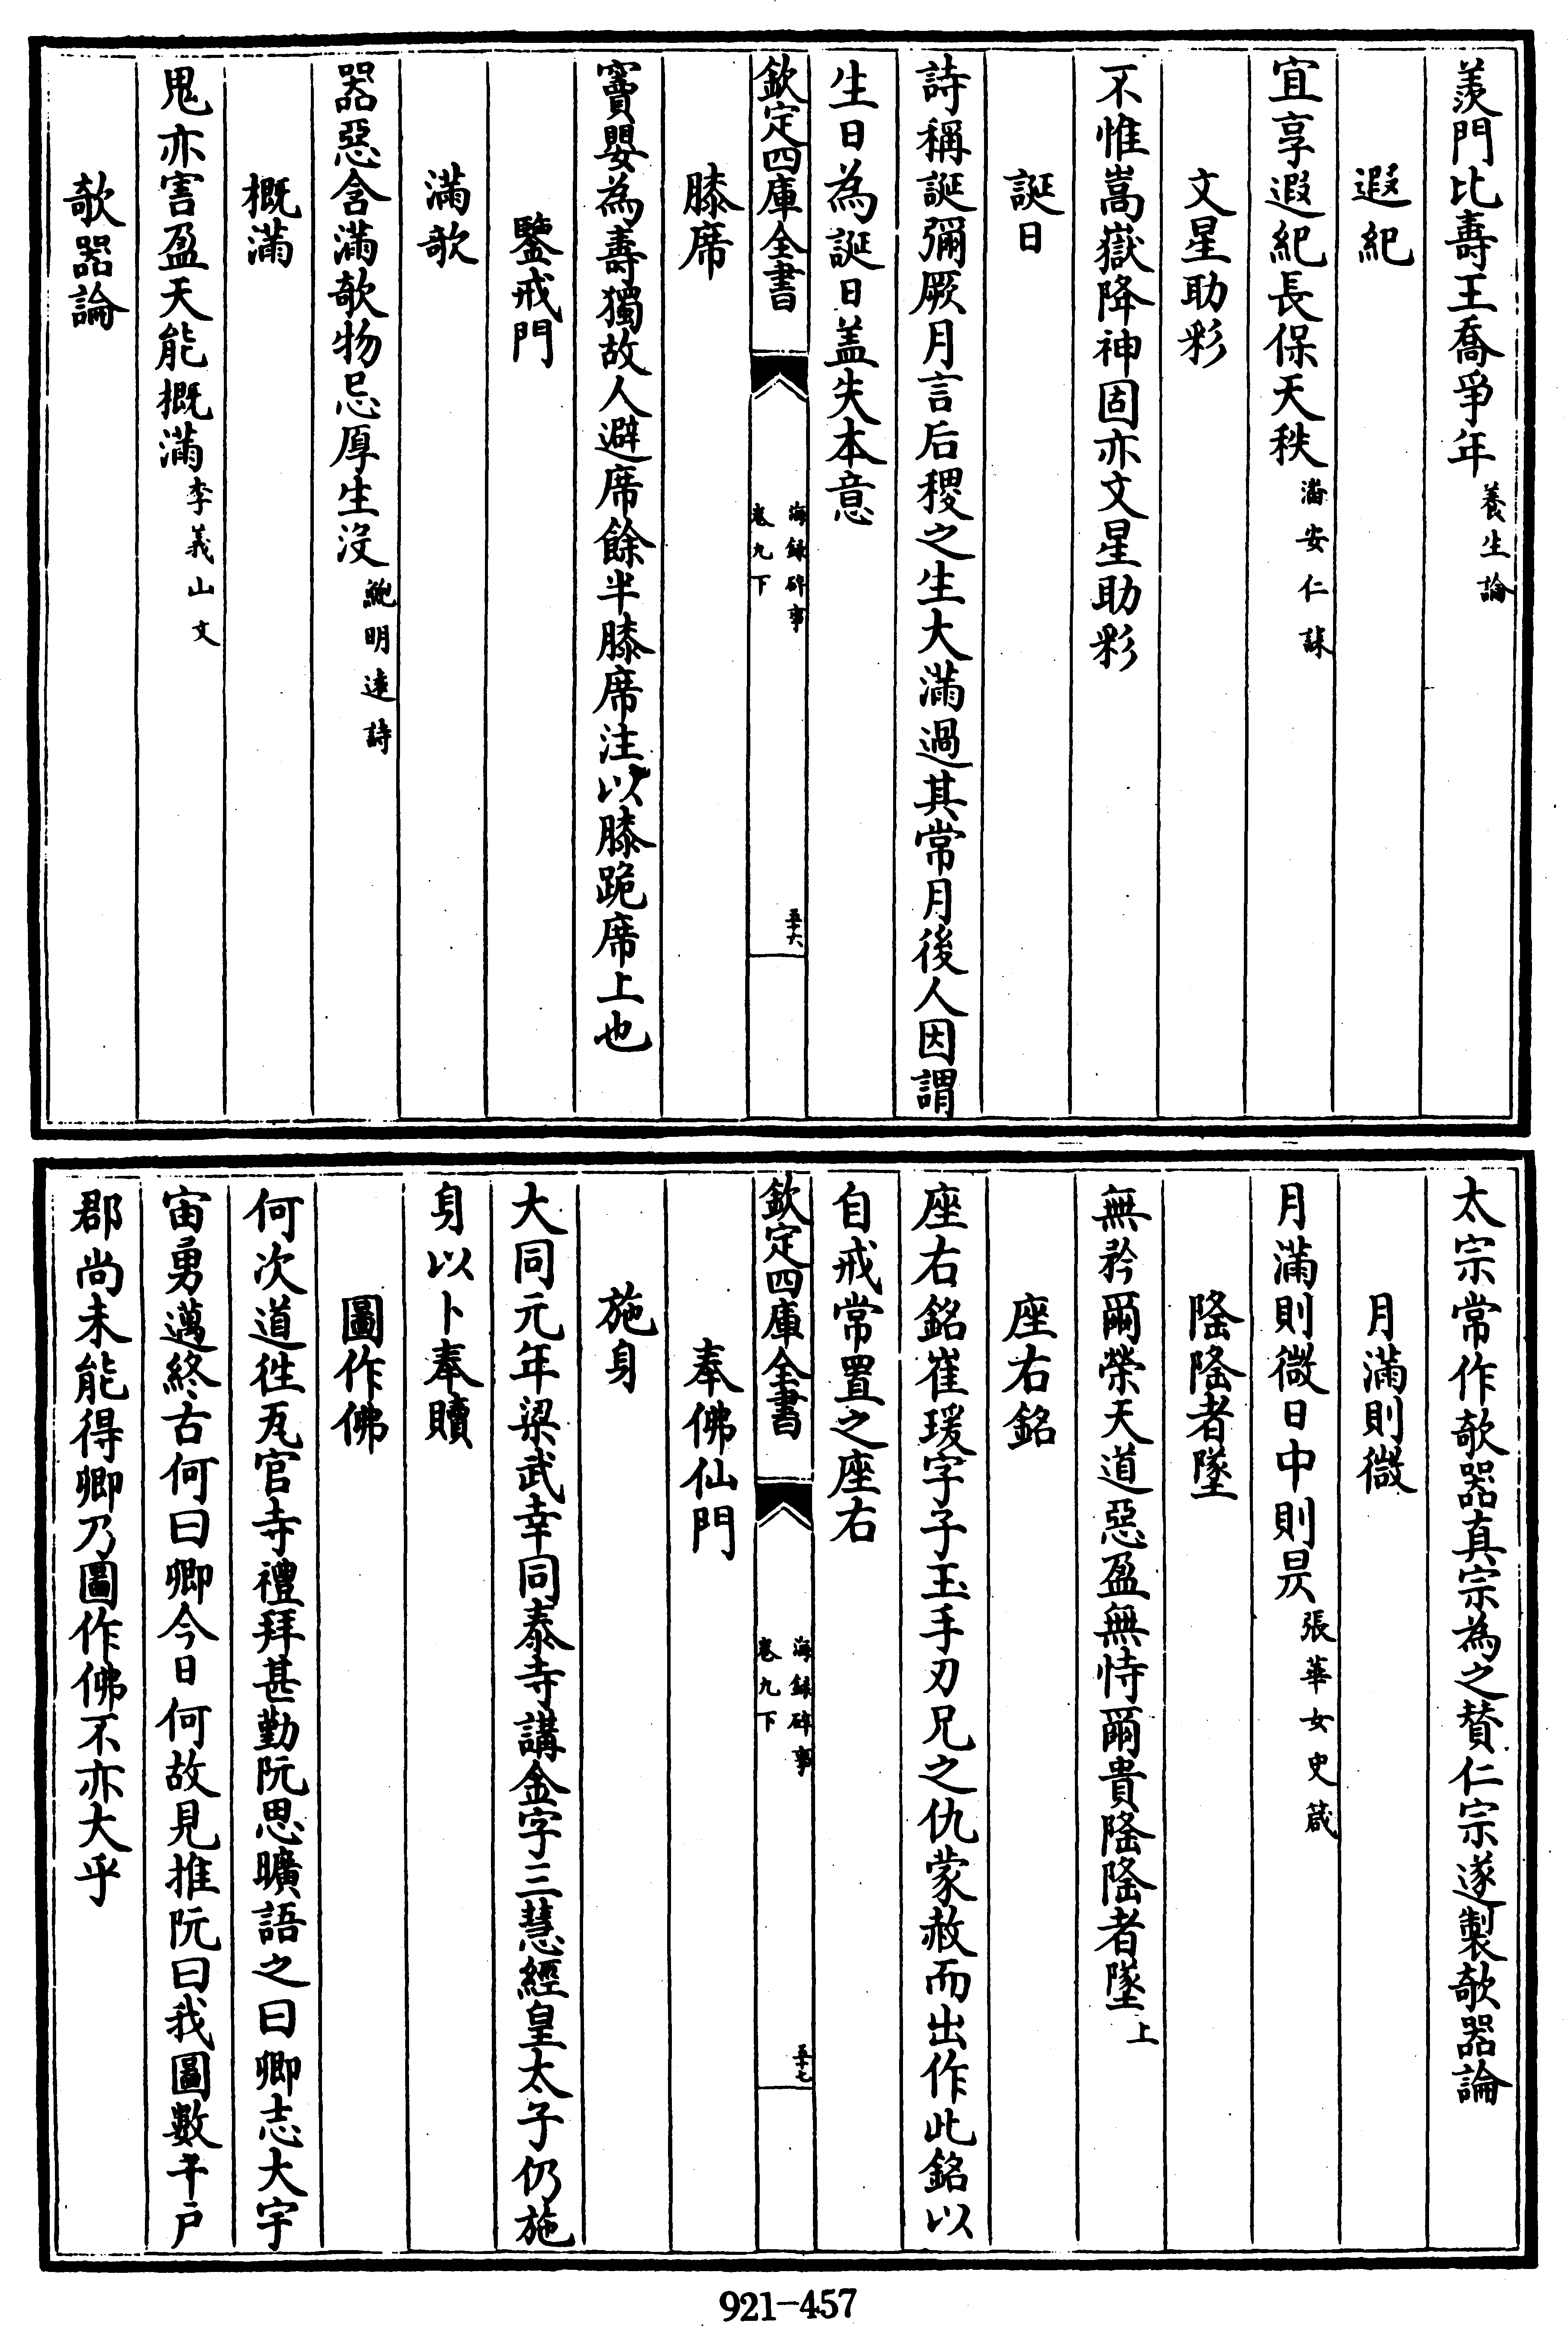 羨門比壽王喬爭年養生論
遐紀
宜享遐紀長保天秩潘安仁誄
文星助彩
不惟嵩嶽降神固亦文星助彩
誕日
詩稱誕彌厥月言后稷之生大滿過其常月後人因謂
生日為誕日盖失本意
欽定四庫全書
海録碎事
卷九下
五十六
膝席
竇嬰為壽獨故人避席餘半膝席注以膝跪席上也
鑒戒門
滿欹
器惡含滿欹物忌厚生沒鮑明遠詩
概滿
鬼亦害盈天能概滿李義山文
欹器論
太宗常作欹器真宗為之賛仁宗遂製欹器論
月滿則微
月滿則微日中則昃張華女史箴
隆隆者墜
無矜爾榮天道惡盈無恃爾貴隆隆者墜上
座右銘
座右銘崔瑗字子玉手刃兄之仇蒙赦而出作此銘以
自戒常置之座右
欽定四庫全書
海録碎事
卷九下
五十七
奉佛仙門
施身
大同元年梁武幸同泰寺講金字三慧經皇太子仍施
身以卜奉贖
圖作佛
何次道徃瓦官寺禮拜甚勤阮思曠語之曰卿志大宇
宙勇邁終古何曰卿今日何故見推阮曰我圖數千户
郡尚未能得卿乃圖作佛不亦大乎
921-457